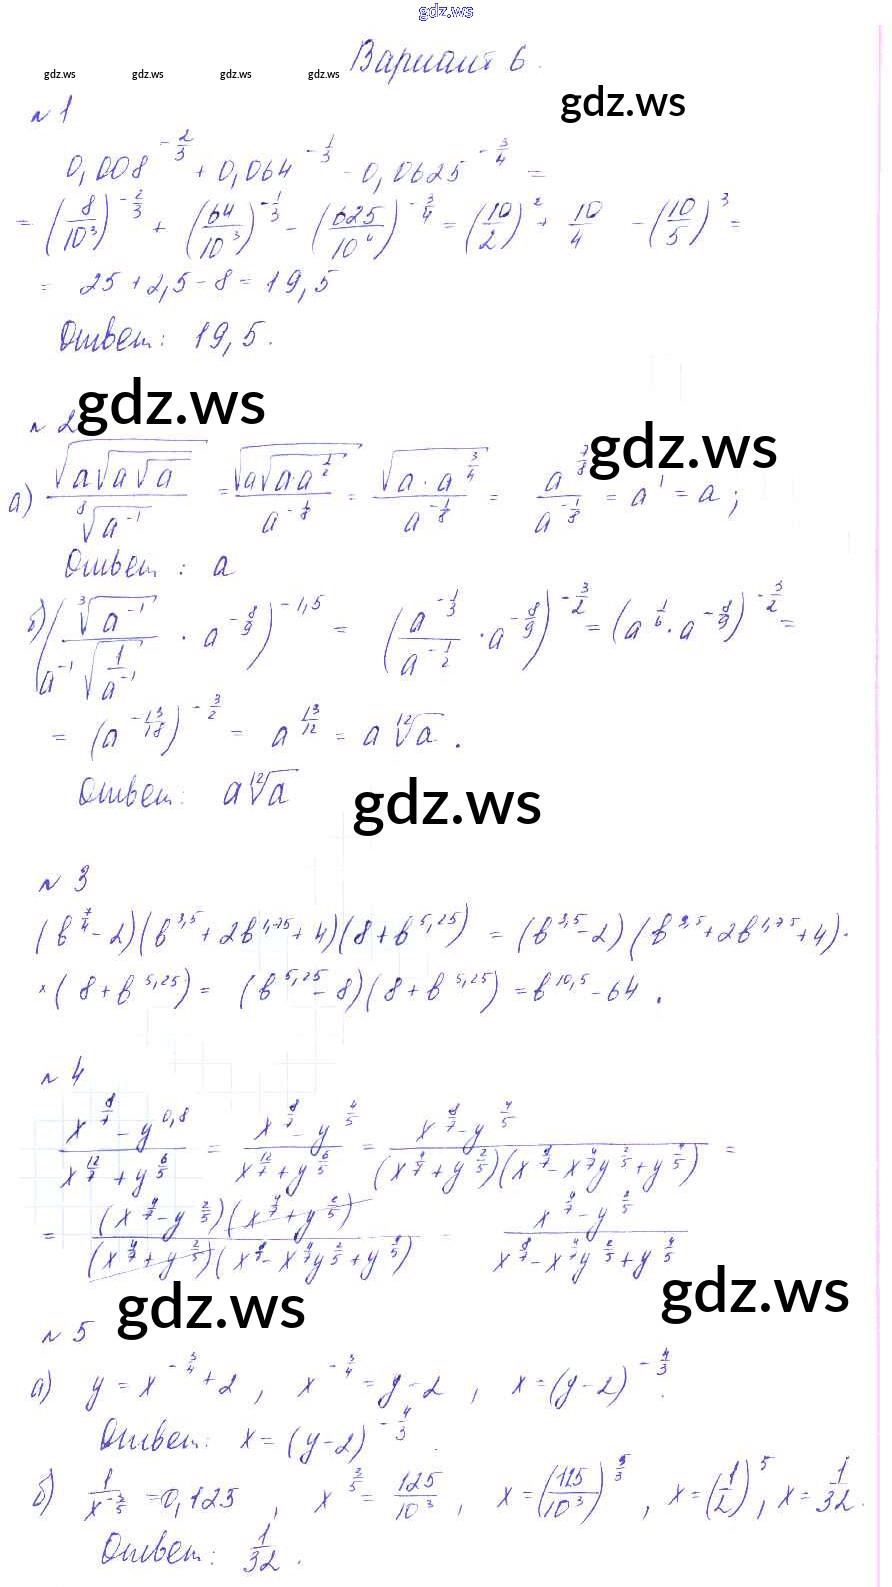 gdz.ws
Вариант 6.
gdz.ws gdz.ws gdz.ws gdz.ws
gdz.ws
№ 1
0,008^{-2/3} + 0,064^{-1/3} - 0,0625^{-3/4} =
= (8/10^3)^{-2/3} + (64/10^3)^{-1/3} - (625/10^4)^{-3/4} = (10/2)^2 + 10/4 - (10/5)^3 =
= 25 + 2,5 - 8 = 19,5
Ответ: 19,5.
gdz.ws
№ 2
gdz.ws
а) √(a√(a√a)) / ⁸√(a^{-1}) = √(a√(a·a^{1/2})) / a^{-1/8} = √(a·a^{3/4}) / a^{-1/8} = a^{7/8} / a^{-1/8} = a^1 = a;
Ответ: a
б) (³√(a^{-1}) / (a^{-1}√(1/a^{-1})) · a^{-8/9})^{-1,5} = (a^{-1/3} / a^{-1/2} · a^{-8/9})^{-3/2} = (a^{1/6} · a^{-8/9})^{-3/2} =
= (a^{-13/18})^{-3/2} = a^{13/12} = a ¹²√a.
Ответ: a ¹²√a
gdz.ws
№ 3
(b^{7/4} - 2)(b^{3,5} + 2b^{1,75} + 4)(8 + b^{5,25}) = (b^{3,5} - 2)(b^{3,5} + 2b^{1,75} + 4)·
×(8 + b^{5,25}) = (b^{5,25} - 8)(8 + b^{5,25}) = b^{10,5} - 64.
№ 4
(x^{8/7} - y^{0,8}) / (x^{12/7} + y^{6/5}) = (x^{8/7} - y^{4/5}) / (x^{12/7} + y^{6/5}) = (x^{8/7} - y^{4/5}) / ((x^{4/7} + y^{2/5})(x^{8/7} - x^{4/7}y^{2/5} + y^{4/5})) =
= (x^{4/7} - y^{2/5})(x^{4/7} + y^{2/5}) / ((x^{4/7} + y^{2/5})(x^{8/7} - x^{4/7}y^{2/5} + y^{4/5})) = (x^{4/7} - y^{2/5}) / (x^{8/7} - x^{4/7}y^{2/5} + y^{4/5})
gdz.ws
gdz.ws
№ 5
а) y = x^{-3/4} + 2, x^{-3/4} = y - 2, x = (y - 2)^{-4/3}.
Ответ: x = (y - 2)^{-4/3}.
б) 1/x^{-3/5} = 0,125, x^{3/5} = 125/10^3, x = (125/10^3)^{5/3}, x = (1/2)^5, x = 1/32.
Ответ: 1/32.